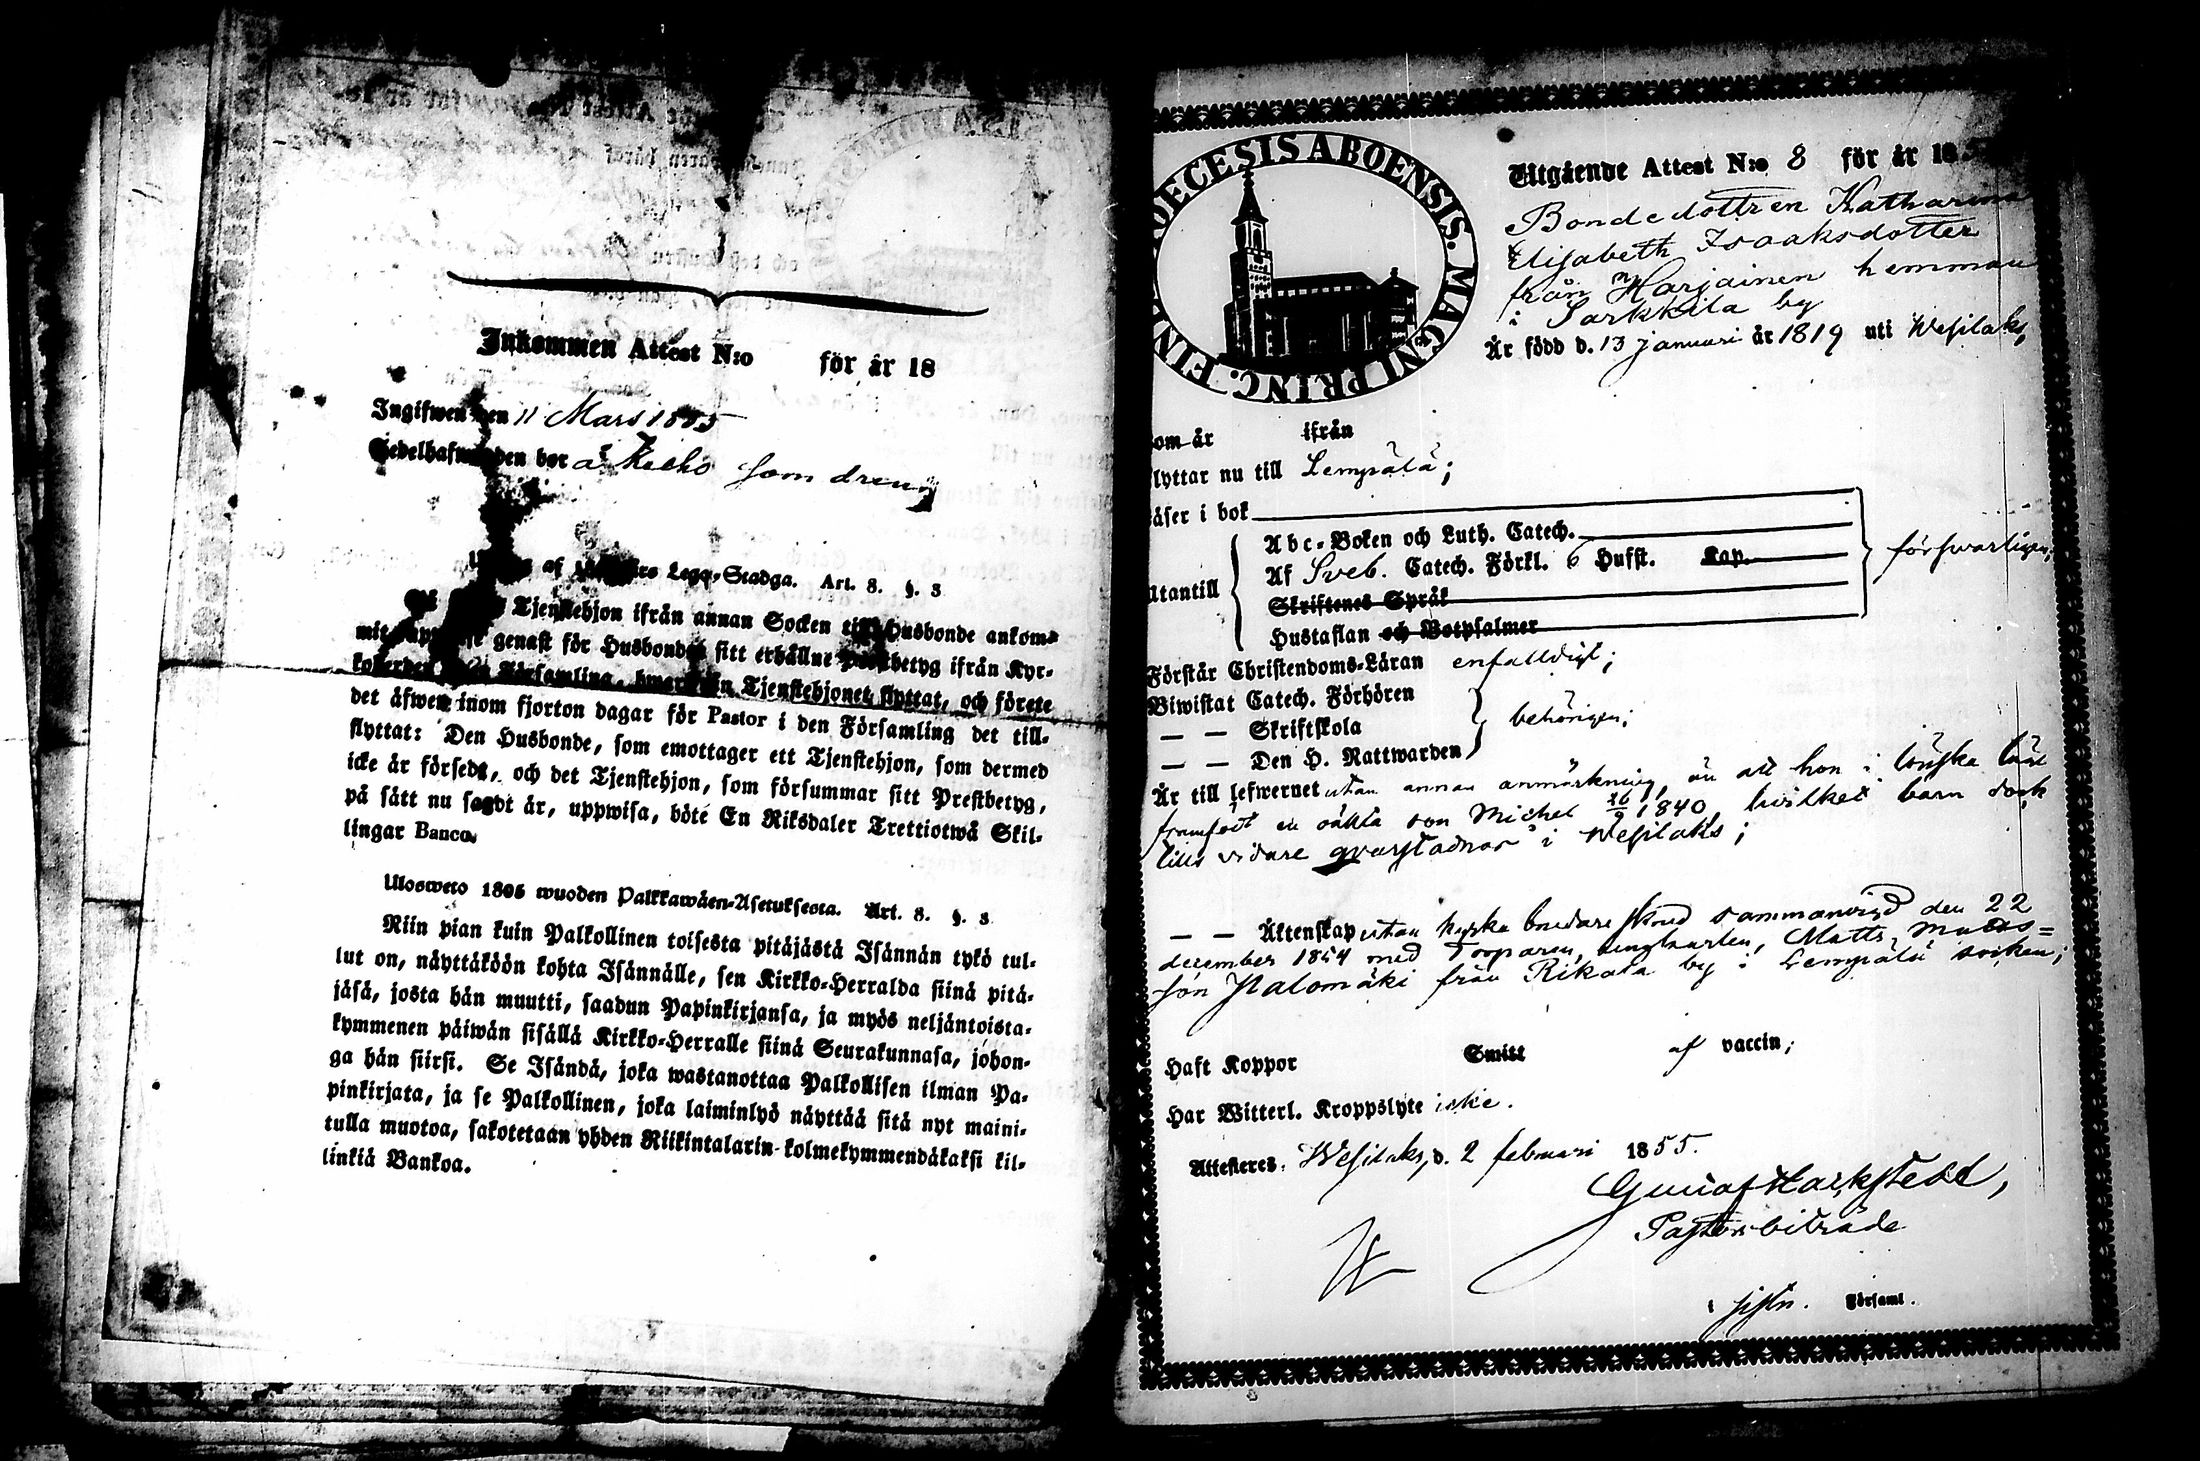 Inkommen Attest N:o för år 18
Ingifwen den 11 Mars 1855
Sedelhafwanden bor å Kecho som dreng
af Lego-Stadga. Art. 8. §. 3
Tjenstehjon ifrån annan Socken till Husbonde ankom-
mit, genast för Husbonden sitt erhållne Prestbetyg ifrån Kyr-
Församling, hwarifrån Tjenstehjonet flyttat, och förete
det äfwen inom fjorton dagar för Pastor i den Församling det till-
flyttat: Den Husbonde, som emottager ett Tjenstehjon, som dermed
icke är försedt, och det Tjenstehjon, som försummar sitt Prestbetyg,
på sätt nu sagdt är, uppwisa, böte En Riksdaler Trettiotwå Skil-
lingar Banco.
Ulosweto 1805 wuoden Palkkawäen-Asetuksesta. Art. 8. §. 3
Niin pian kuin Palkollinen toisesta pitäjästä Isännän tykö tul-
lut on, näyttäköön kohta Isännälle, sen Kirkko-Herralda siinä pitä-
jäsä, josta hän muutti, saadun Papinkirjansa, ja myös neljäntoista-
kymmenen päiwän sisällä Kirkko-Herralle siinä Seurakunnasa, johon-
ga hän siirsi. Se Isändä, joka wastanottaa Palkollisen ilman Pa-
pinkirjata, ja se Palkollinen, joka laiminlyö näyttää sitä nyt maini-
tulla muotoa, sakotetaan yhden Riikintalarin kolmekymmendäkaksi kil-
linkiä Bankoa.
DIOECESIS ABOENSIS. MAGNI PRINC. FINL
Utgående Attest N:o 8 för år 18
Bondedottren Katharina
Elisabeth Isaaksdotter
från Harjainen hemman
i Sarkkila by
Är född d. 13 januari år 1819 uti Wesilaks,
om är ifrån
lyttar nu till Lempälä;
äser i bok
Abc-Boken och Luth. Catech.
Utantill Af Sveb. Catech. Förkl. 6 Hufst. Kap. försvarligen;
Skriftenes Språk
Hustaflan och Botpsalmer
Förstår Christendoms-Läran enfaldigt;
Biwistat Catech. Förhören
— — Skriftskola behörigen;
— — Den H. Nattwarden
Är till lefwernet utan annan anmärkning, än att hon i lönska läge
framfödt en oäkta son Michel 26/9 1840, hvilket barn dock
tills vidare qvarstadnar i Wesilaks;
— — Äktenskap utan kyrko brudare skrud sammanvigd den 22
december 1854 med Torparen, ungkarlen, Matts Matts=
son Halomäki från Rikala by i Lempälä socken;
Haft Koppor Smitt af vaccin;
Har Witterl. Kroppslyte icke.
Attesteres, Wesilaks, d. 2 februari 1855.
Gustaf Harkstedt,
Pastorsbiträde
i Församl.